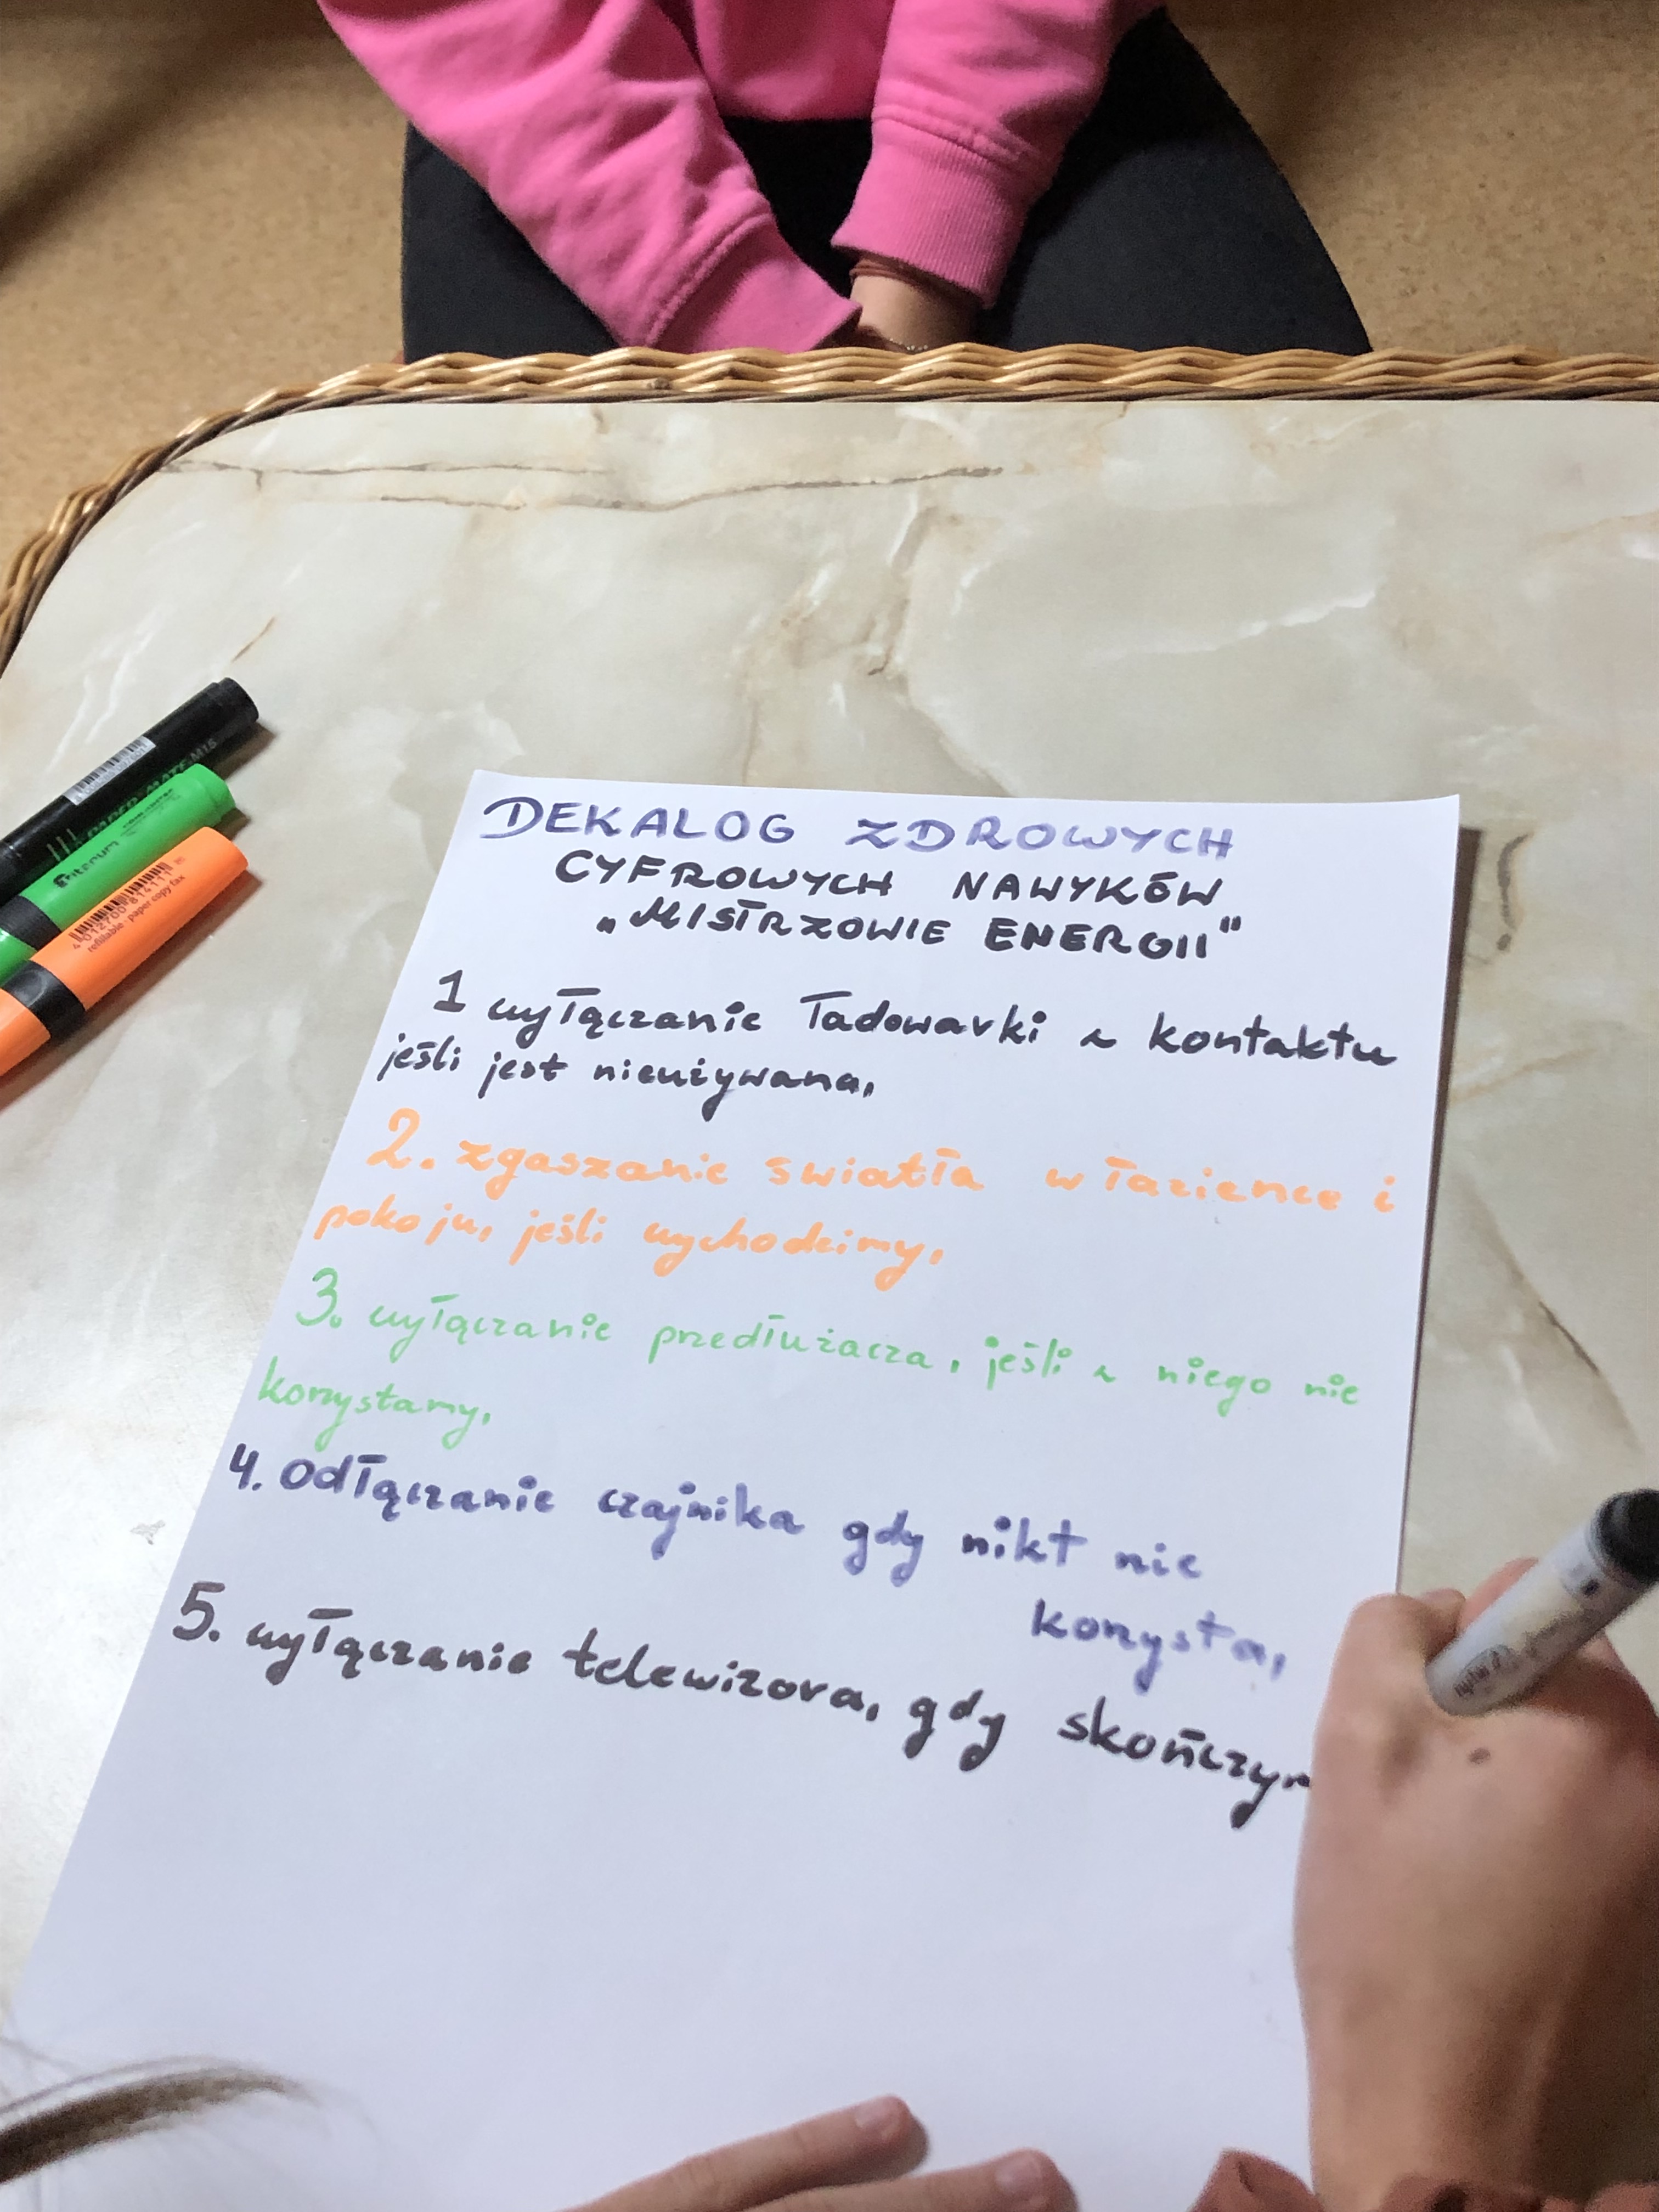 DEKALOG ZDROWYCH
CYFROWYCH NAWYKÓW
„MISTRZOWIE ENERGII"
1 wyłączanie ładowarki z kontaktu
jeśli jest nieużywana,
2. zgaszanie światła w łazience i
pokoju, jeśli wychodzimy,
3. wyłączanie przedłużacza, jeśli z niego nie
korzystamy,
4. Odłączanie czajnika gdy nikt nie
korzysta,
5. wyłączanie telewizora, gdy skończym
PAPER-MATE M15
4 012700 814111
refillable paper copy fax